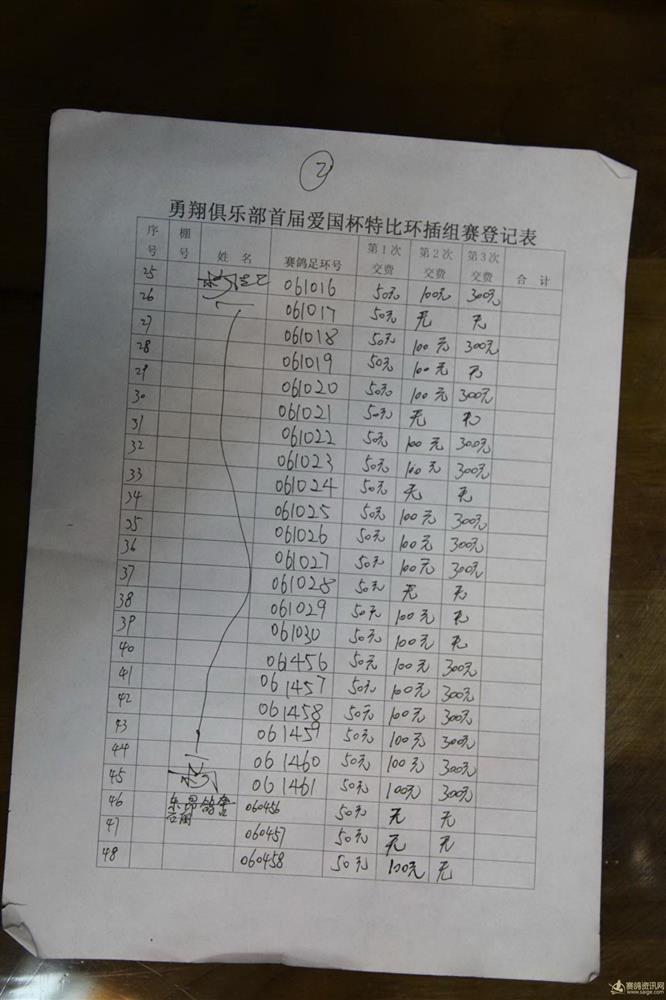 2
勇翔俱乐部首届爱国杯特比环插组赛登记表
序号 棚号 姓 名 赛鸽足环号 第1次交费 第2次交费 第3次交费 合 计
25 061016 50元 100元 300元
26 061017 50元 无 无
27 061018 50元 100元 300元
28 061019 50元 100元 无
29 061020 50元 100元 300元
30 061021 50元 无 无
31 061022 50元 100元 300元
32 061023 50元 100元 300元
33 061024 50元 无 无
34 061025 50元 100元 300元
35 061026 50元 100元 300元
36 061027 50元 100元 300元
37 061028 50元 无 无
38 061029 50元 100元 无
39 061030 50元 100元 无
40 061456 50元 100元 300元
41 061457 50元 100元 300元
42 061458 50元 100元 300元
43 061459 50元 100元 300元
44 061460 50元 100元 300元
45 061461 50元 100元 300元
46 乐昂鸽舍 060456 50元 无 无
47 060457 50元 无 无
48 060458 50元 100元 无
赛鸽资讯网
www.saige.com